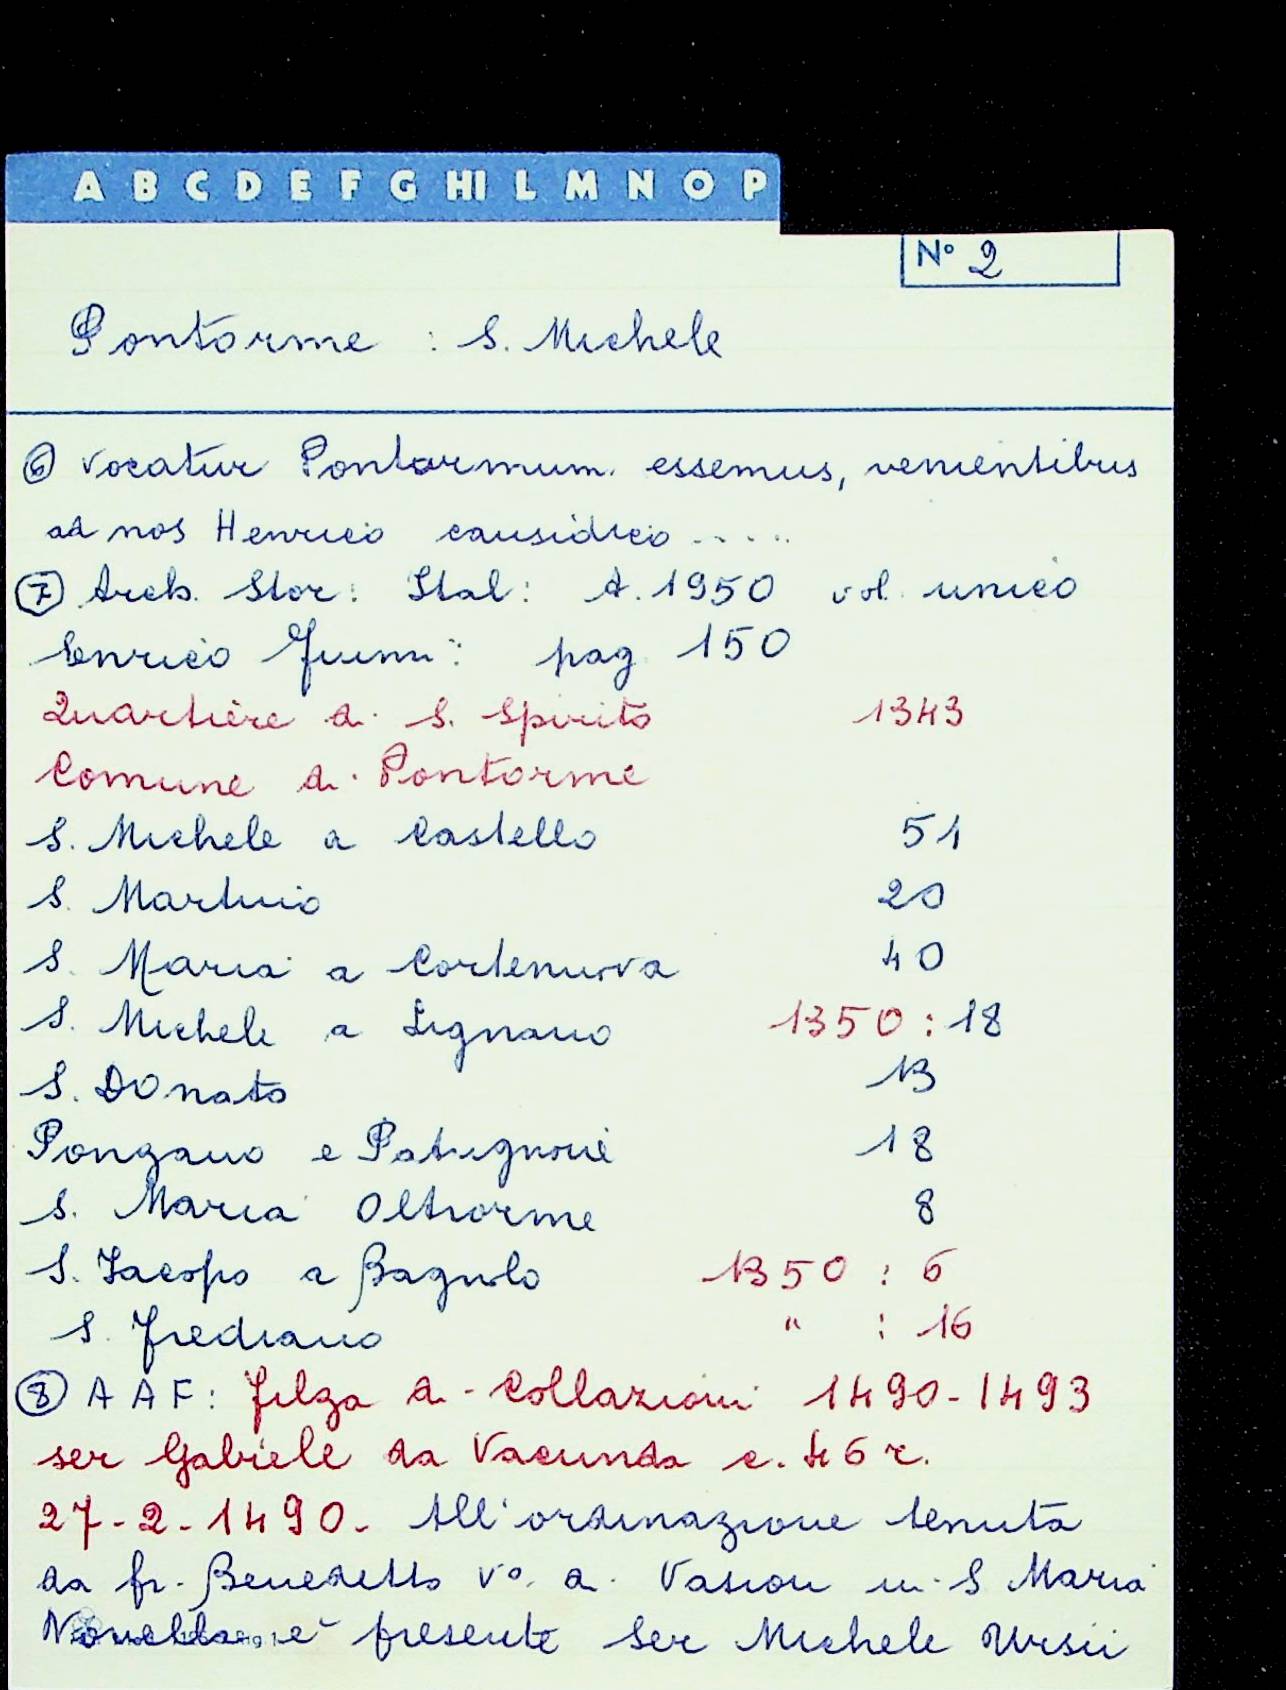 A B C D E F G HI L M N O P
N° 2
Pontorme : S. Michele
⑥ vocatur Pontormum. essemus, venientibus
ad nos Henrico causidico .....
⑦ Arch. Stor: Ital: A. 1950 vol. unico
Enrico Fiumi: pag. 150
Quartiere di S. Spirito 1343
Comune di Pontorme
S. Michele a Castello 51
S. Martino 20
S. Maria a Cortenuova 40
S. Michele a Lignano 1350 : 18
S. Donato 13
Ponzano e Patignoni 18
S. Maria Oltrorme 8
S. Iacopo a Bagnolo 1350 : 6
S. Frediano " : 16
⑧ A A F: filza di Collazioni 1490-1493
ser Gabriele da Vacunda c. 46 r.
27-2-1490. All'ordinazione tenuta
da fr. Benedetto v°. di Vasion in S Maria
Novella è presente Ser Michele Ursii